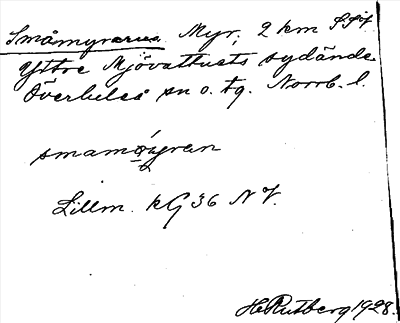 Småmyrarna. Myr, 2 km SSÖ.
Yttre Mjövattnets sydände.
Överluleå sn o. tg. Norrb. l.
smamýran
Lillm. kG 36 N V.
H Rutberg 1928.